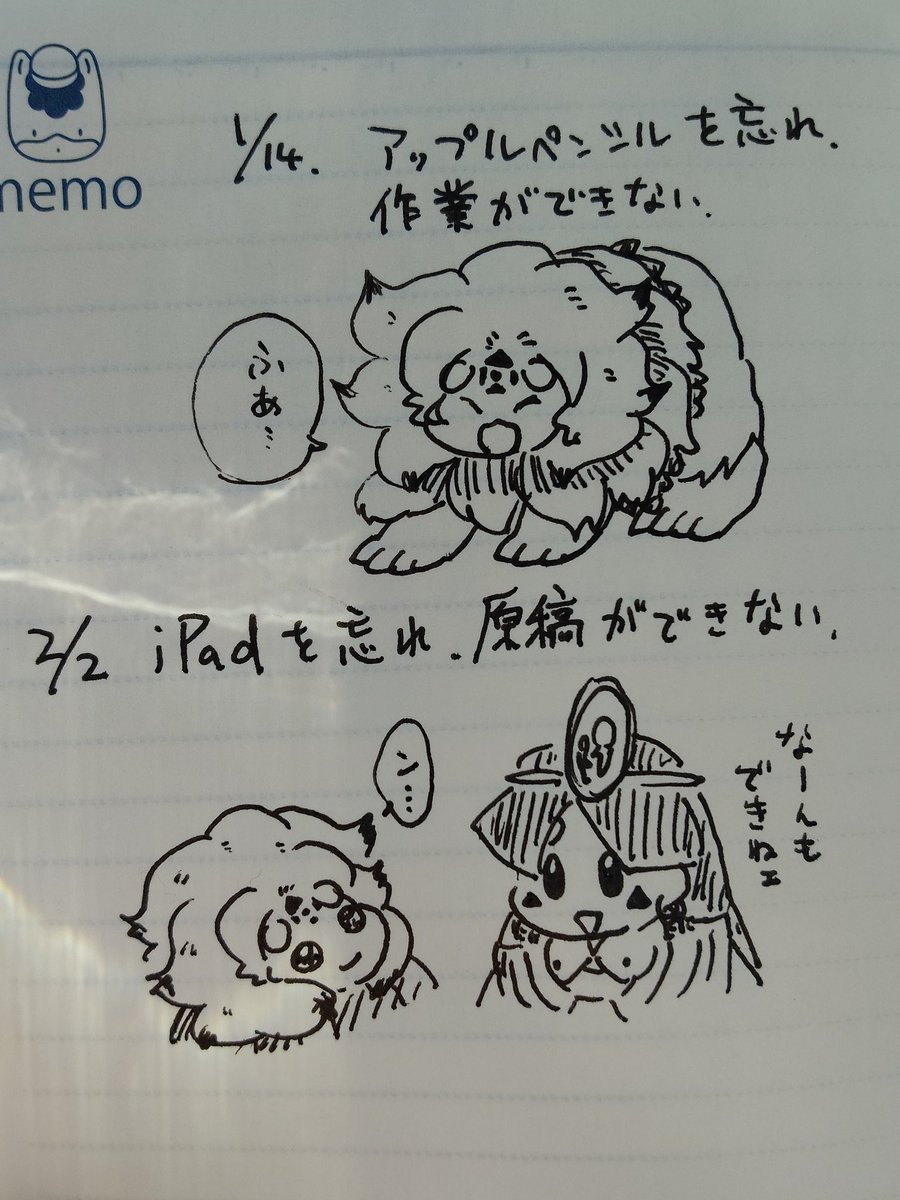 memo
1/14. アップルペンシルを忘れ.
作業ができない.
ふぁ…
2/2 iPadを忘れ.原稿ができない.
ン…
なーんも
できねェ